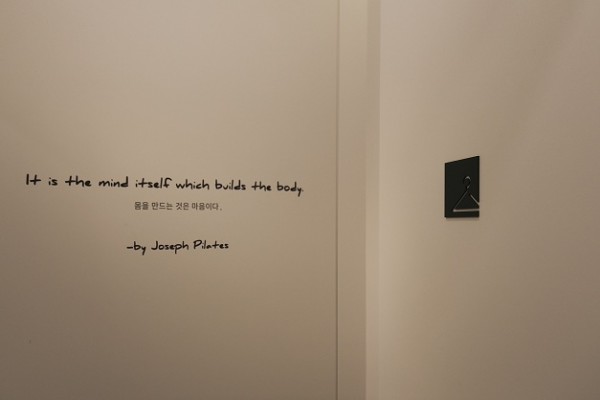 It is the mind itself which builds the body.
몸을 만드는 것은 마음이다.
-by Joseph Pilates